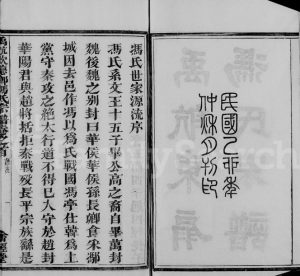 民國乙卯年
仲秋月刊印
馮氏世家源流序
馮氏系文王十五子畢公高之裔自畢萬封
魏後魏之別封曰華侯華侯孫長卿食采馮
城因去邑作馮以為氏戰國馮亭仕韓為上
黨守秦攻之絕太行道不得已入守於趙封
華陽君與趙將括拒秦戰死長平宗族繇是